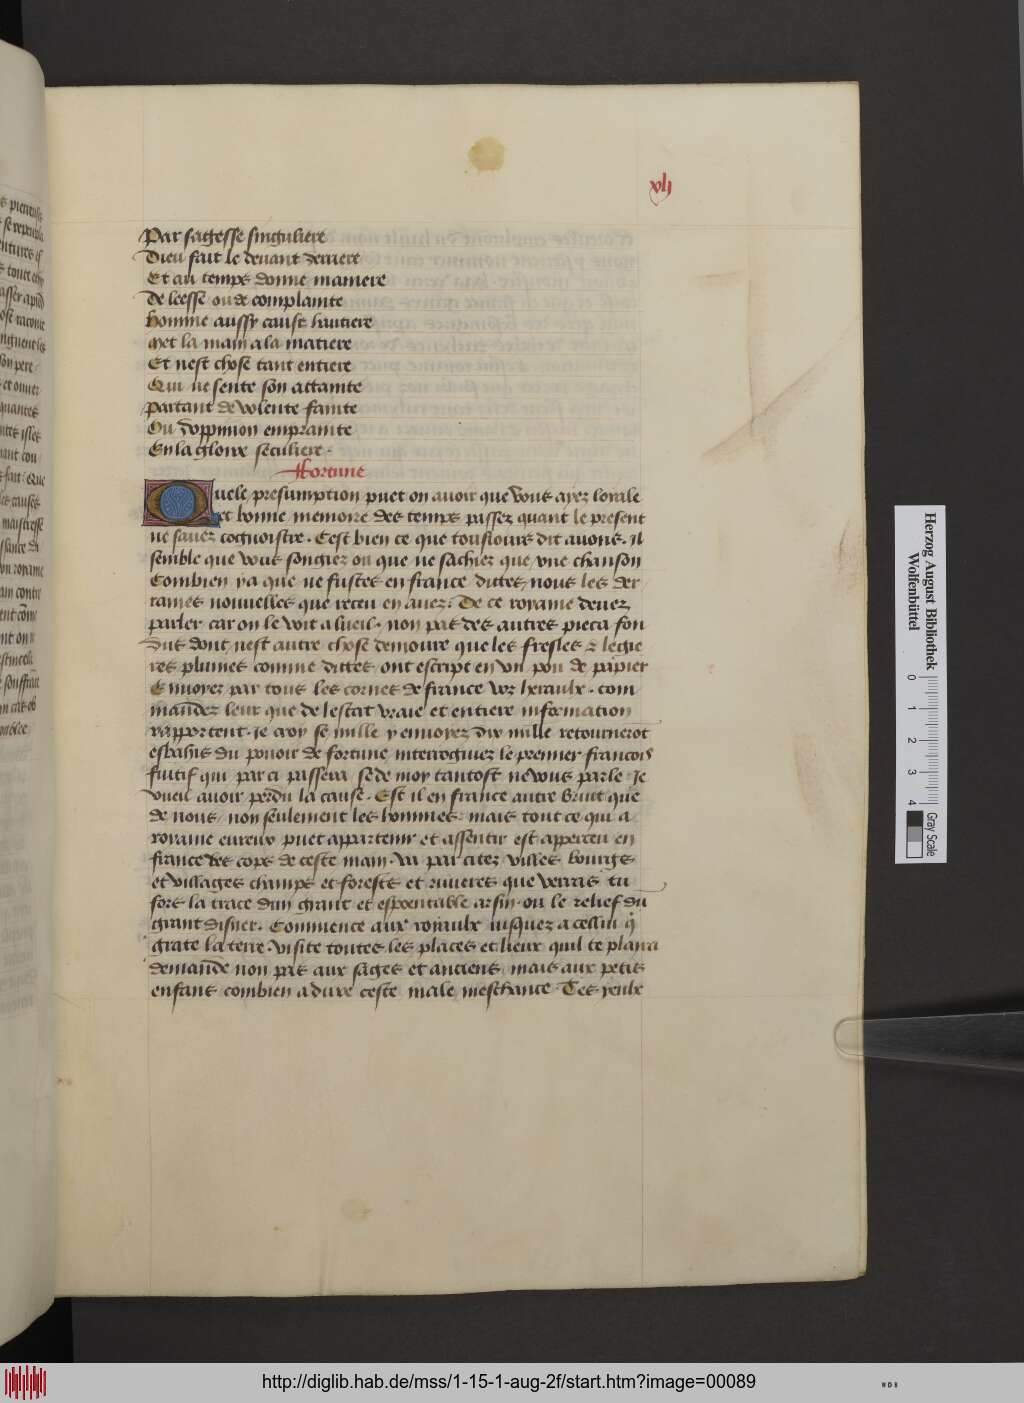 xlj
Par sagesse singuliere
Dieu fait le devant derriere
Et au temps donne maniere
De leesse ou de complainte
Homme aussy caust hautiere
Met la main a la matiere
Et nest chose tant entiere
Qui ne sente son attainte
Partant de volente fainte
Ou doppinion emprainte
En la gloire seculiere.
Fortune
Quele presumption puet on avoir que vous ayez loyale
et bonne memoire des temps passez quant le present
ne savez cognoistre. Cest bien ce que tousiours dit avons. Il
semble que vous songiez ou que ne sachiez que une chanson
Combien y a que ne fustes en france dittes nous les der
raines nouvelles que receu en avez. De ce royame devez
parler car on le voit a lueil. non pas des autres pieca fon
dus dont nest autre chose demoure que les fresles & legie
res plumes comme dittes ont escript en un pou de papier
Envoyez par tous les cornes de france voz heraulx. com
mandez leur que de lestat vraie et entiere information
rapportent. Je croy se mille y envoyez dix mille retournerot
esbahis du povoir de fortune interroguiez le premier francois
fuitif qui par ci passera se de moy tantost ne vous parle. Je
vueil avoir perdu la cause. Est il en france autre bruit que
de nous. non seulement les hommes. mais tout ce qui a
royame eureux puet appartenir et assentir est apperceu en
france des cops de ceste main. Va par citez villes bourgs
et villages champs et forests et rivieres que verras tu
fors la trace dun grant et espoentable arsin. ou le relief du
grant disner. Commence aux royaulx iusquez a cellui q
grate la terre. visite toutes les places et lieux quil te plaira
demande non pas aux sages et anciens mais aux petis
enfans combien a dure ceste male meschance. Tes yeulx
Herzog August Bibliothek
Wolfenbüttel
0 1 2 3 4
Gray Scale
http://diglib.hab.de/mss/1-15-1-aug-2f/start.htm?image=00089